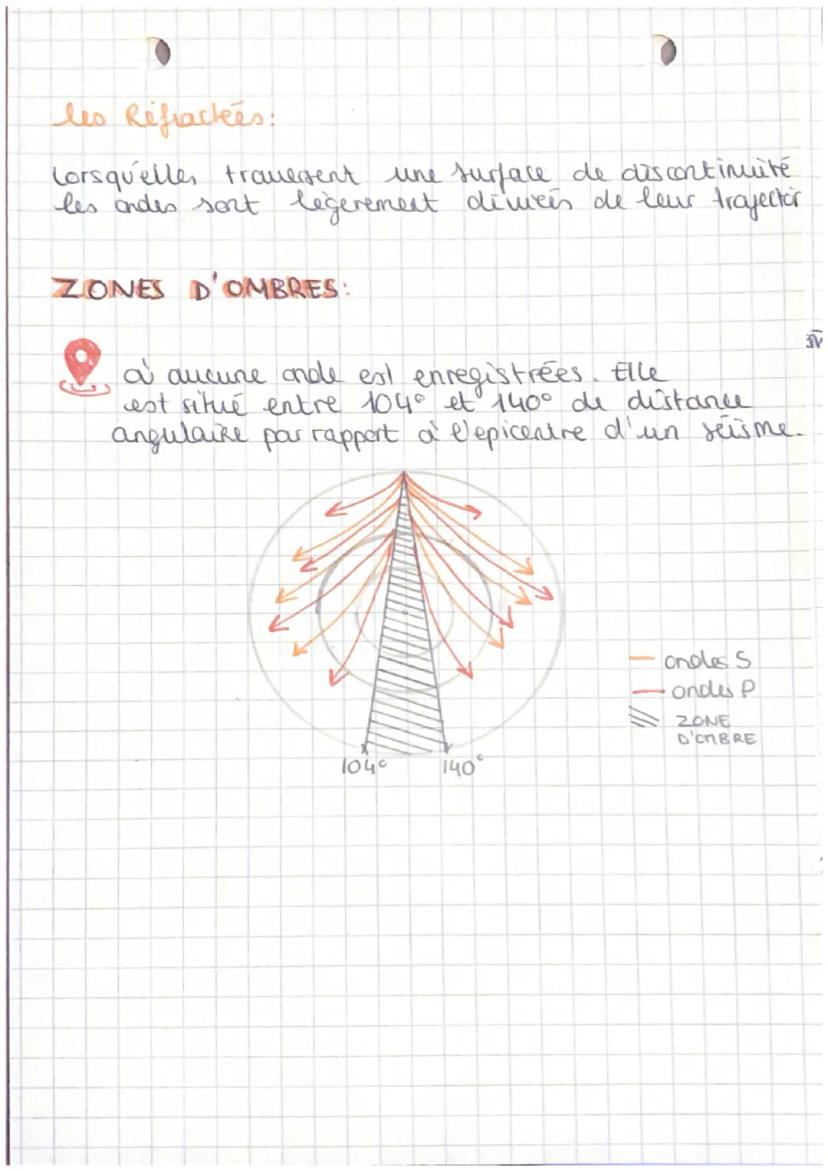 les Réfractées:
Lorsqu'elles traversent une surface de discontinuité
les ondes sont légerement déviées de leur trajectoir
ZONES D'OMBRES:
où aucune onde est enregistrées. Elle
est situé entre 104° et 140° de distance
angulaire par rapport à l'epicentre d'un séisme.
ondes S
ondes P
ZONE
D'OMBRE
104° 140°